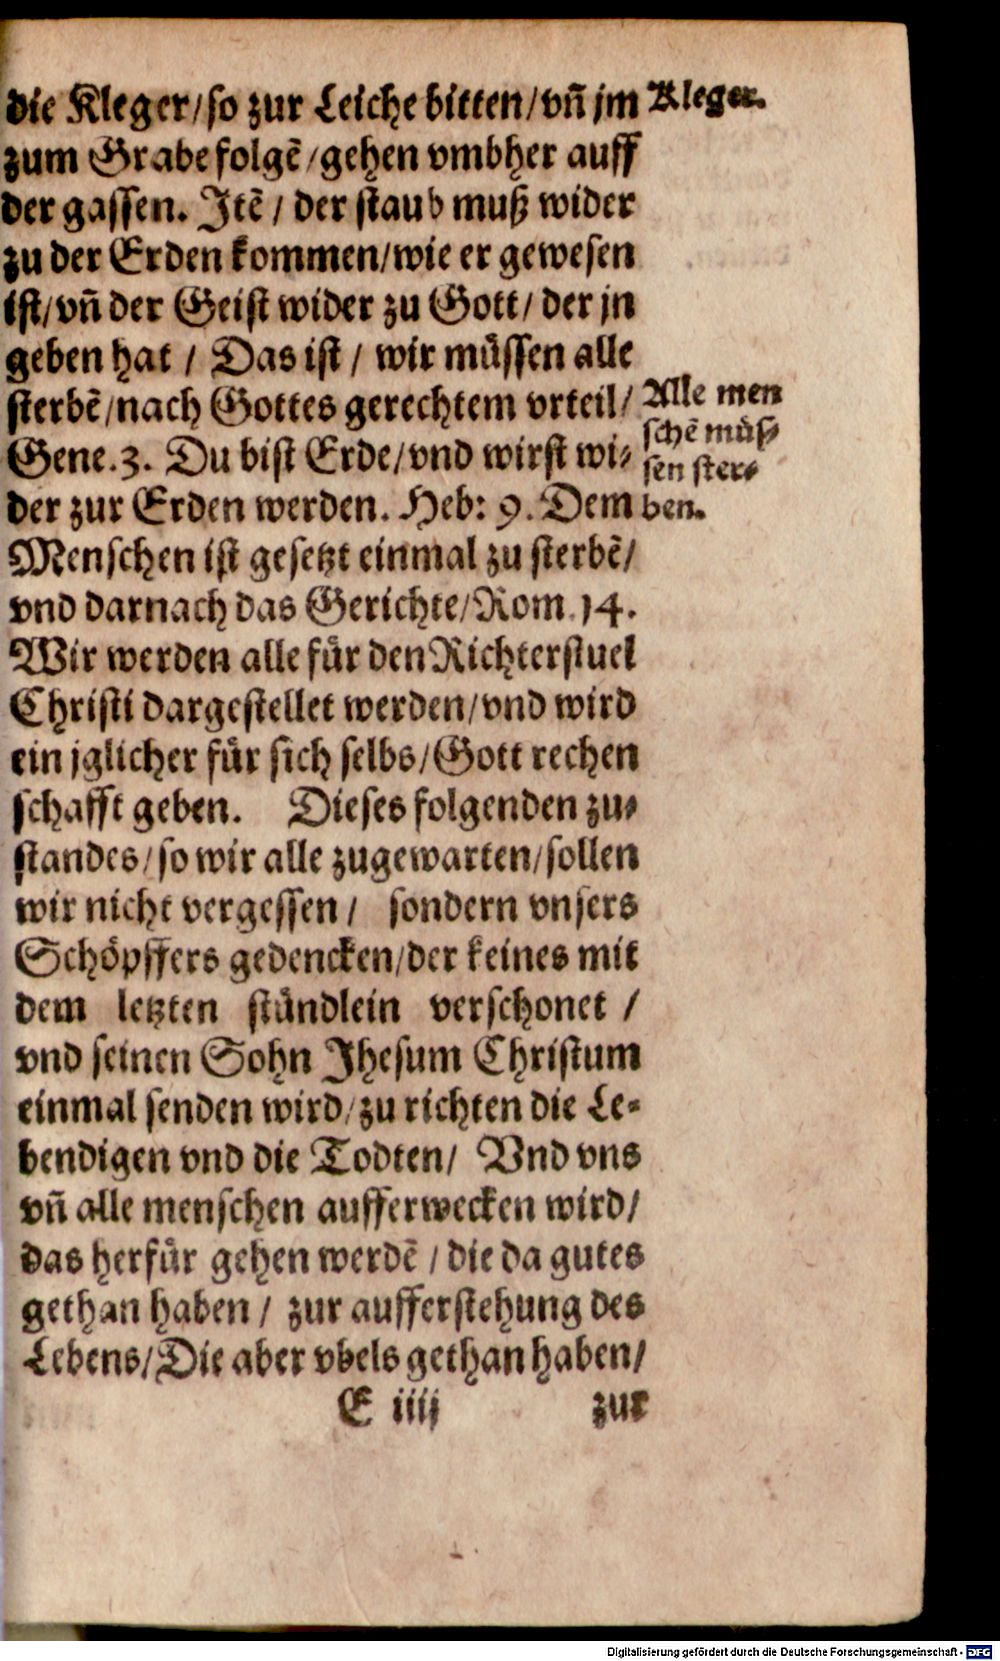 die Kleger/so zur Leiche bitten/vñ jm
Kleger.
zum Grabe folgẽ/gehen vmbher auff
der gassen. Itẽ/ der staub muß wider
zu der Erden kommen/wie er gewesen
ist/vñ der Geist wider zu Gott/ der jn
geben hat / Das ist / wir müssen alle
sterbẽ/nach Gottes gerechtem vrteil/
Gene.3. Du bist Erde/vnd wirst wi⸗
der zur Erden werden. Heb: 9. Dem
Alle men
schẽ müs⸗
sen ster⸗
ben.
Menschen ist gesetzt einmal zu sterbẽ/
vnd darnach das Gerichte/Rom.14.
Wir werden alle für den Richterstuel
Christi dargestellet werden/vnd wird
ein jglicher für sich selbs/Gott rechen
schafft geben. Dieses folgenden zu⸗
standes/so wir alle zugewarten/sollen
wir nicht vergessen/ sondern vnsers
Schöpffers gedencken/der keines mit
dem letzten stündlein verschonet /
vnd seinen Sohn Jhesum Christum
einmal senden wird/zu richten die Le⸗
bendigen vnd die Todten/ Vnd vns
vñ alle menschen aufferwecken wird/
das herfür gehen werdẽ / die da gutes
gethan haben / zur aufferstehung des
Lebens/Die aber vbels gethan haben/
E iiij zur
Digitalisierung gefördert durch die Deutsche Forschungsgemeinschaft - DFG